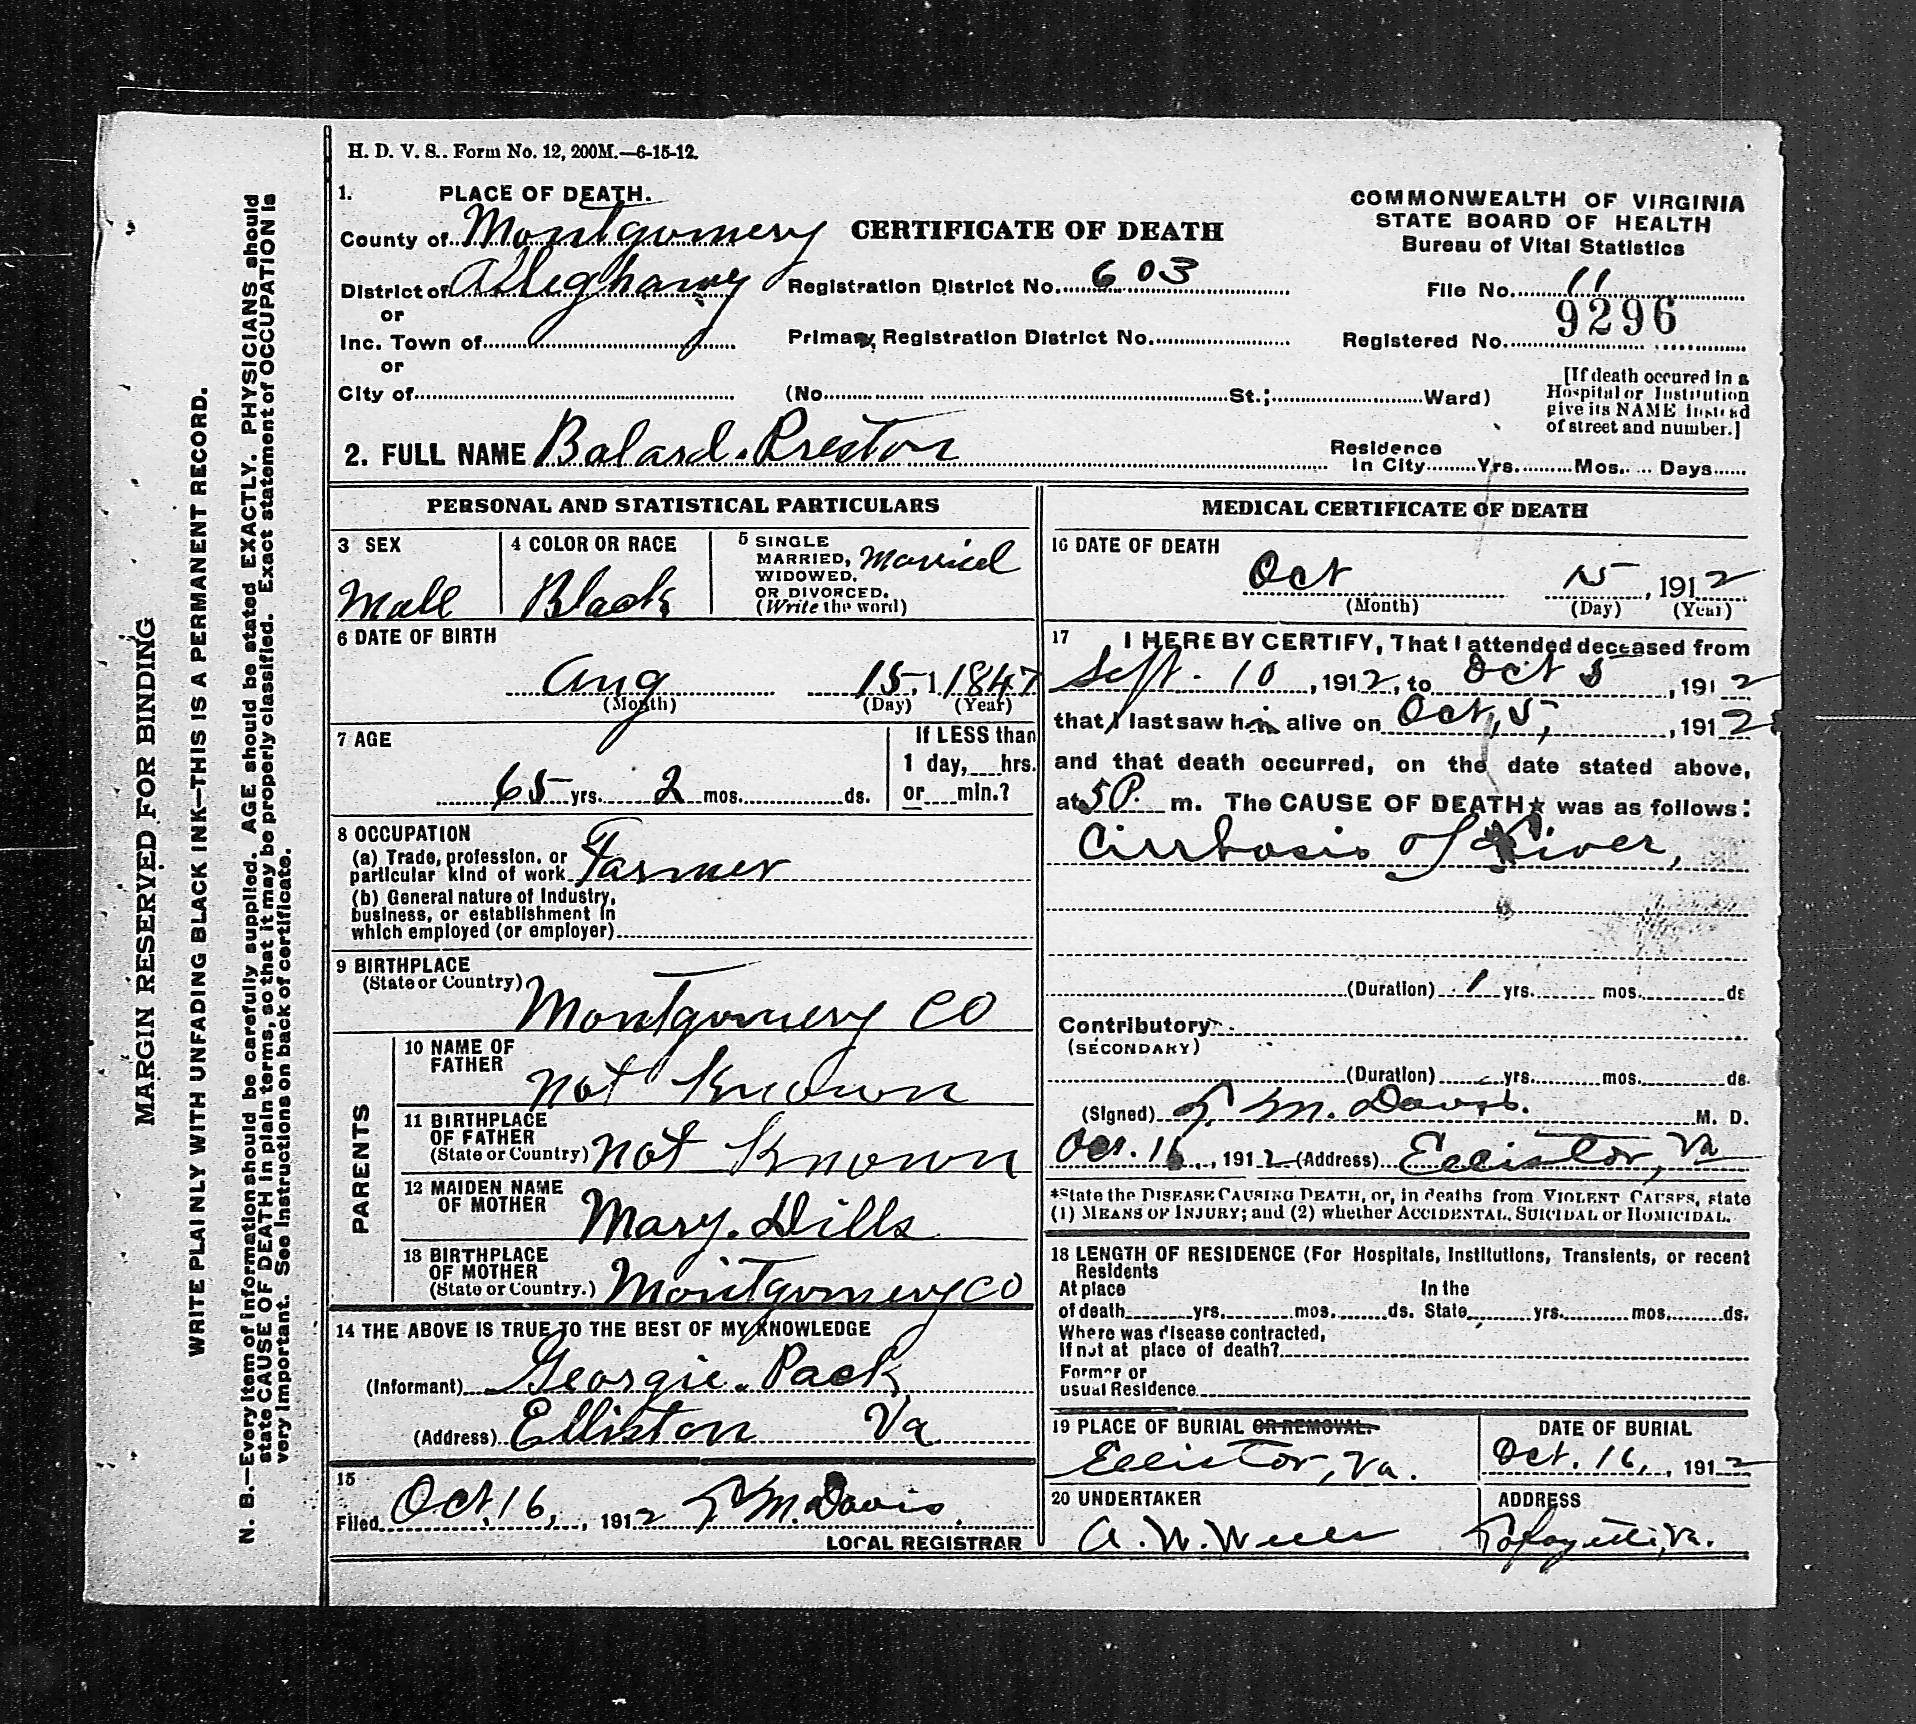 H. D. V. S.. Form No. 12, 200M.—6-15-12.
1. PLACE OF DEATH.
County of Montgomery
District of Alleghany
or
Inc. Town of
or
City of
CERTIFICATE OF DEATH
Registration District No. 603
Primary Registration District No.
(No. St.; Ward)
COMMONWEALTH OF VIRGINIA
STATE BOARD OF HEALTH
Bureau of Vital Statistics
File No. 11
9296
Registered No.
[If death occured in a
Hospital or Institution
give its NAME instead
of street and number.]
2. FULL NAME Balard. Preston
Residence
In City Yrs. Mos. Days
PERSONAL AND STATISTICAL PARTICULARS
3 SEX
Male
4 COLOR OR RACE
Black
5 SINGLE
MARRIED, Married
WIDOWED,
OR DIVORCED.
(Write the word)
6 DATE OF BIRTH
Aug 15, 1 1847
(Month) (Day) (Year)
7 AGE
65 yrs. 2 mos. ds.
If LESS than
1 day, hrs.
or min.?
8 OCCUPATION
(a) Trade, profession, or
particular kind of work Farmer
(b) General nature of Industry,
business, or establishment in
which employed (or employer)
9 BIRTHPLACE
(State or Country) Montgomery CO
PARENTS
10 NAME OF
FATHER not Known
11 BIRTHPLACE
OF FATHER
(State or Country) not Known
12 MAIDEN NAME
OF MOTHER Mary. Dills
13 BIRTHPLACE
OF MOTHER
(State or Country.) Montgomery CO
14 THE ABOVE IS TRUE TO THE BEST OF MY KNOWLEDGE
(Informant) Georgie. Pack
(Address) Elliston Va
15
Filed Oct. 16, , 1912 M. Davis.
LOCAL REGISTRAR
MEDICAL CERTIFICATE OF DEATH
16 DATE OF DEATH
Oct 15 , 1912
(Month) (Day) (Year)
17 I HEREBY CERTIFY, That I attended deceased from
Sept. 10 , 1912, to Oct 5 , 1912
that I last saw him alive on Oct, 5, , 1912
and that death occurred, on the date stated above,
at 5 P. m. The CAUSE OF DEATH* was as follows:
Cirrhosis of Liver,
(Duration) 1 yrs. mos. ds
Contributory
(SECONDARY)
(Duration) yrs. mos. ds.
(Signed) M. Davis. M. D.
Oct. 16, 1912 (Address) Elliston, Va
*State the DISEASE CAUSING DEATH, or, in deaths from VIOLENT CAUSES, state
(1) MEANS OF INJURY; and (2) whether ACCIDENTAL, SUICIDAL or HOMICIDAL.
18 LENGTH OF RESIDENCE (For Hospitals, Institutions, Transients, or recent
Residents
At place In the
of death yrs. mos. ds. State yrs. mos. ds.
Where was disease contracted,
If not at place of death?
Former or
usual Residence
19 PLACE OF BURIAL OR REMOVAL.
Elliston, Va.
DATE OF BURIAL
Oct. 16, , 1912
20 UNDERTAKER
A. W. Wells
ADDRESS
Lafayette, Va.
MARGIN RESERVED FOR BINDING
WRITE PLAINLY WITH UNFADING BLACK INK—THIS IS A PERMANENT RECORD.
N. B.—Every item of information should be carefully supplied. AGE should be stated EXACTLY. PHYSICIANS should
state CAUSE OF DEATH in plain terms, so that it may be properly classified. Exact statement of OCCUPATION is
very important. See instructions on back of certificate.